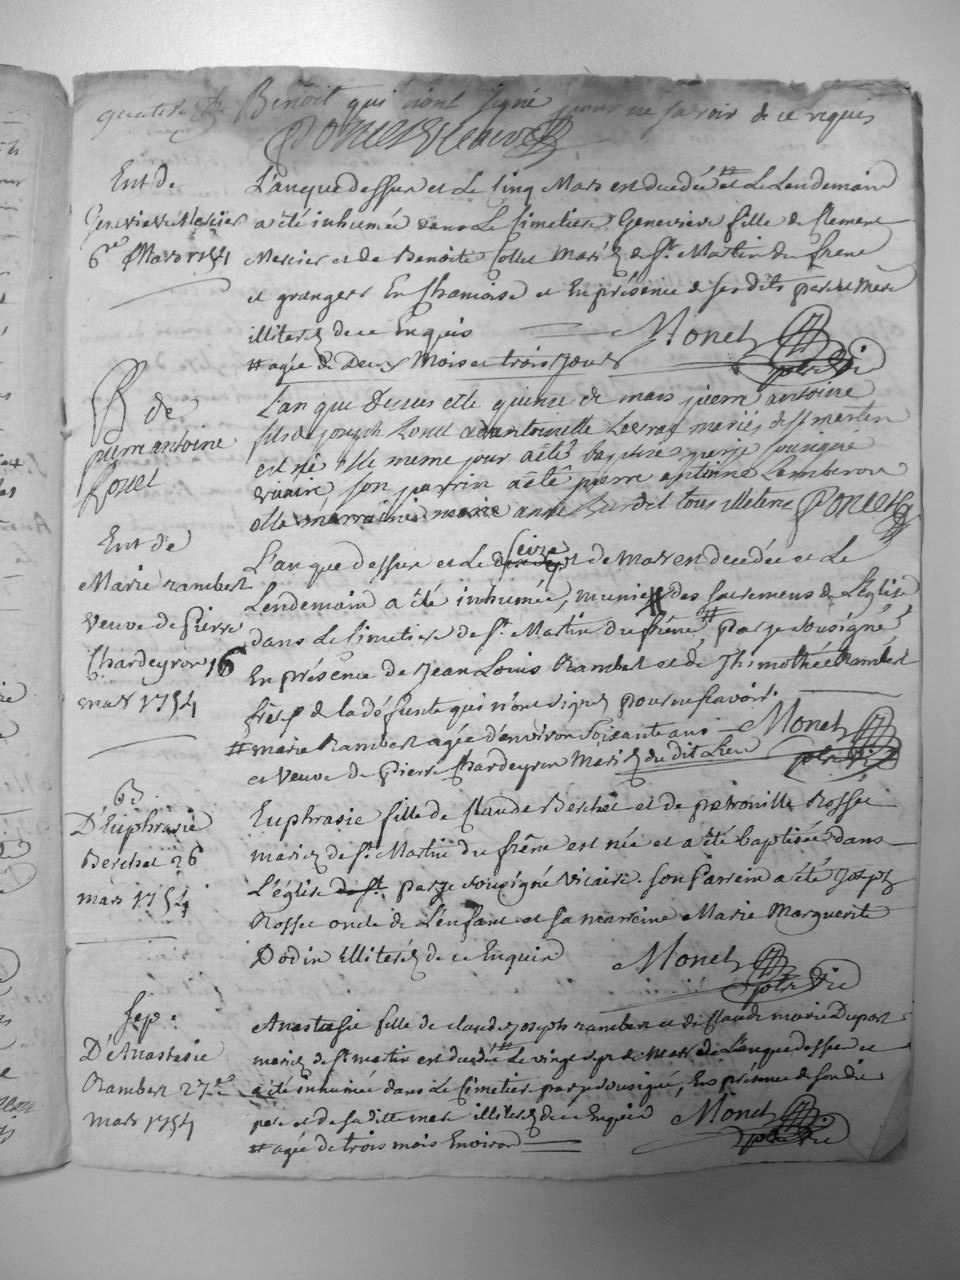 Benoit qui n'ont signé pour ne savoir de ce requis
Ent de
Genevieve Mercier
6e Mars 1754
L'an que dessus et Le cinq Mars est decedée # et Le Lendemain
a été inhumée dans Le Cimetiere Genevieve fille de Clement
Mercier et de Benoite Collet Mariés de St Martin du frene
et grangers En Chamoise et En présence de ses dits pere et Mere
illiterés de ce Enquis Monet
# agée de Deux Mois et trois Jours ptre vic
B de
pierre antoine
L'an que dessus et le quinze de mars pierre antoine
fils de joseph et dantoinette mariés de st martin
est né et le meme jour a eté baptise par je soussigné
vicaire son parrin a été pierre antoine
et la marraine marie anne tous illiteres
Ent de
Marie rambert
veuve de Pierre
Chardeyron 16
mars 1754
L'an que dessus et Le seize de mars est decedée et Le
Lendemain a été inhumée, munie des sacremens de L'Eglise
dans Le Cimetiere de St Martin du frêne, # par je sousigné
En présence de Jean Louis Rambert et de Thimothée Rambert
freres de la défunte qui n'ont signé pour ne savoir.
# marie Rambert agée d'environ soixante ans Monet
et veuve de Pierre Chardeyron Mariés du dit Lieu ptre vic
B.
D'Euphrasie
Berchet 26
mars 1754
Euphrasie fille de Claude Berchet et de petronille Rosset
mariés de St Martin du frêne est née et a été baptisée dans
L'église de St. par je sousigné vicaire. son Parrein a été Joseph
Rosset oncle de L'enfant et sa marreine Marie Marguerite
Dodin illiterés de ce Enquis Monet
ptre vic
sep:
D'Anastasie
Rambert 27e
mars 1754
Anastasie fille de claude joseph rambert et de Claude marie Dupont
mariés de St martin est decedée # Le vingt sept de Mars de L'an que dessus et
a été inhumée dans Le Cimetiere par je sousigné, En présence de son dit
pere et de sa ditte mere illiterés de ce Enquis Monet
# agée de trois mois Environ ptre vic